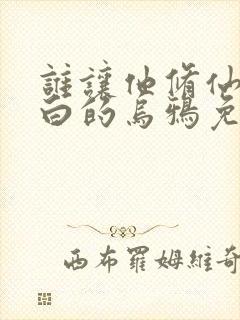 誰讓他脩仙
白的烏鴉免
西布羅姆維奇